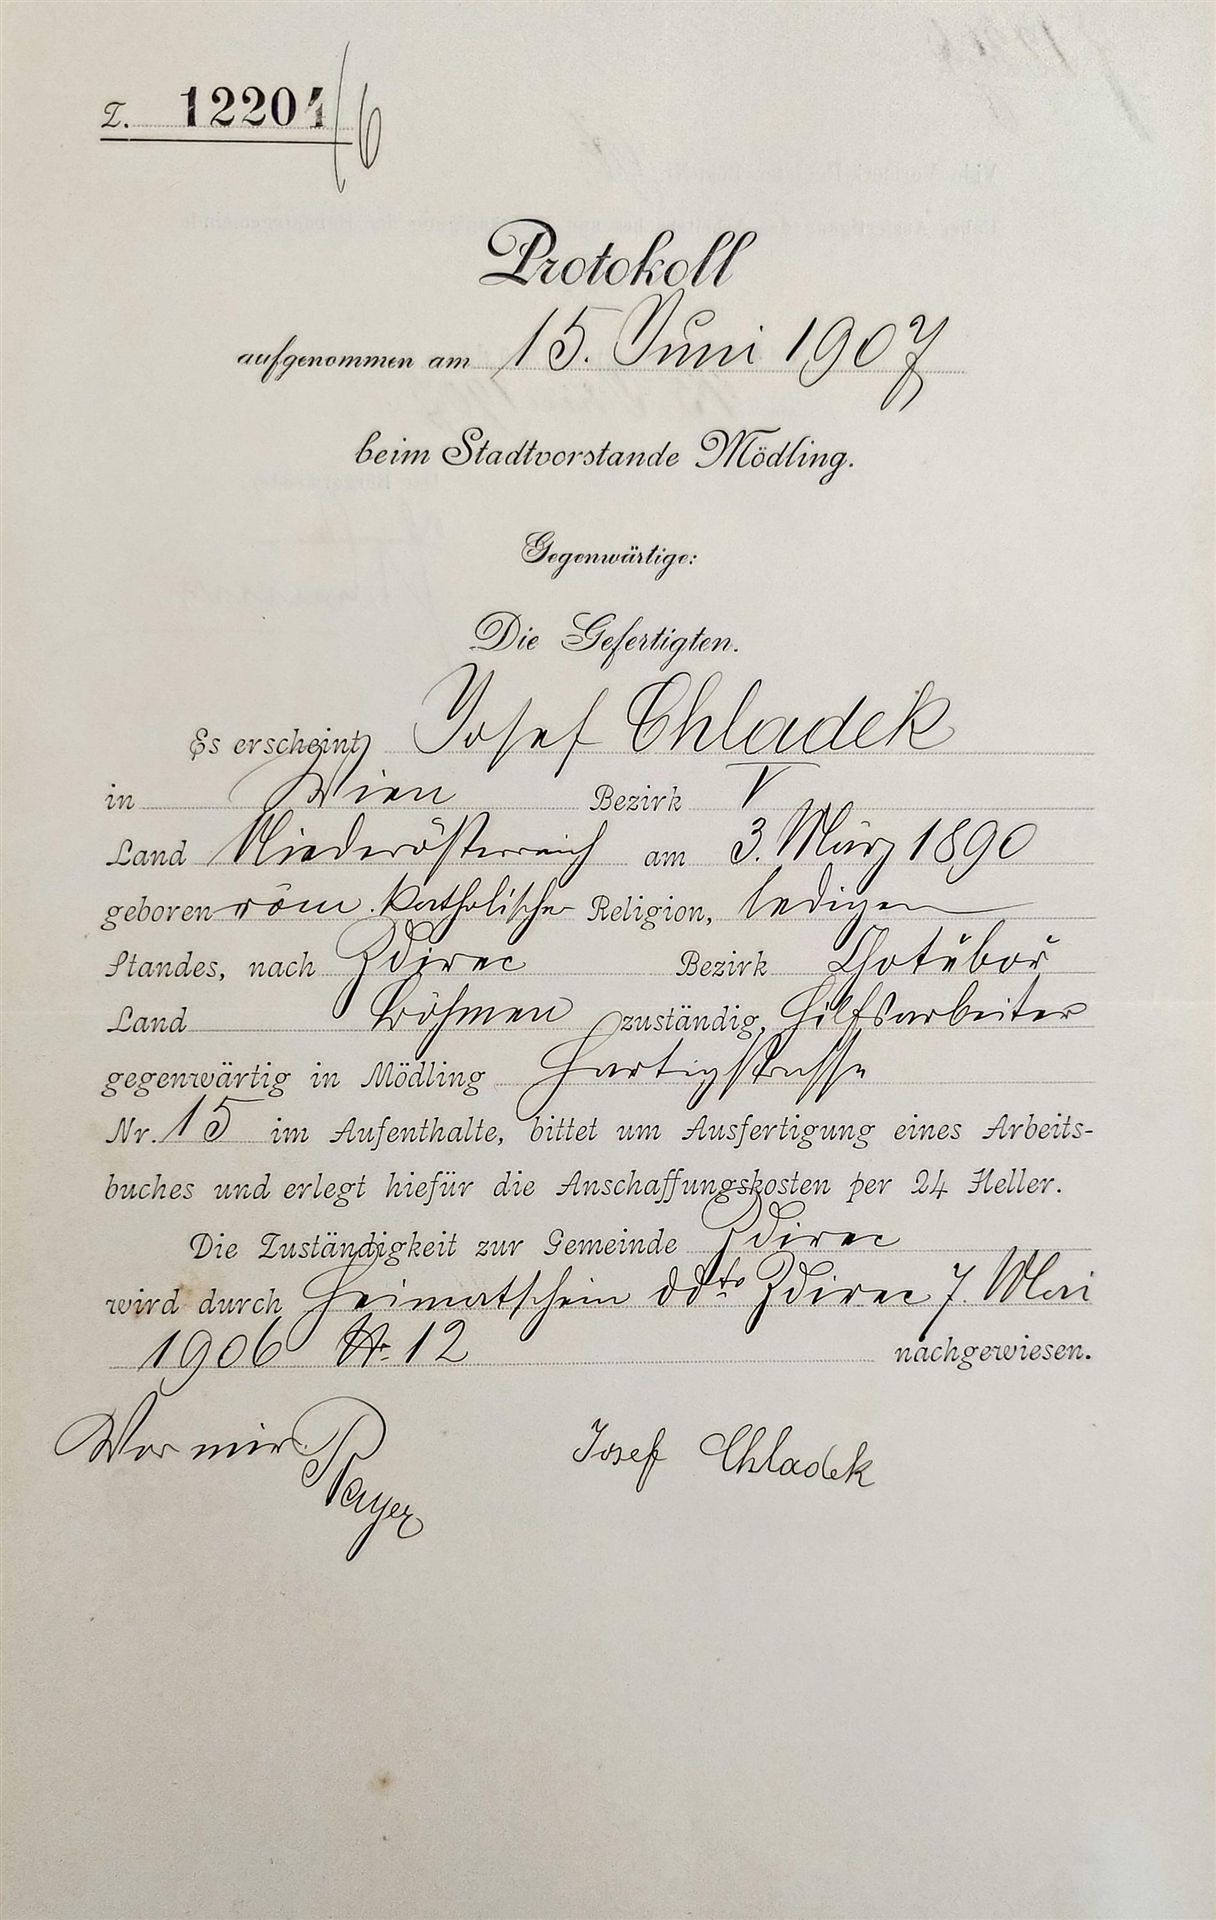 Z. 12204/6
Protokoll
aufgenommen am 15. Juni 1907
beim Stadtvorstande Mödling.
Gegenwärtige:
Die Gefertigten.
Es erscheint Josef Chladek
in Wien Bezirk V
Land Niederösterreich am 3. März 1890
geboren röm. katholischer Religion, ledigen
Standes, nach Zdirec Bezirk Chotěboř
Land Böhmen zuständig, Hilfsarbeiter
gegenwärtig in Mödling Hartigstrasse
Nr. 15 im Aufenthalte, bittet um Ausfertigung eines Arbeits-
buches und erlegt hiefür die Anschaffungskosten per 24 Heller.
Die Zuständigkeit zur Gemeinde Zdirec
wird durch Heimatschein ddto Zdirec 7. Mai
1906 Nr. 12 nachgewiesen.
Vor mir: Payer
Josef Chladek